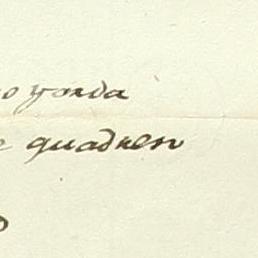 o yorda
e quadren